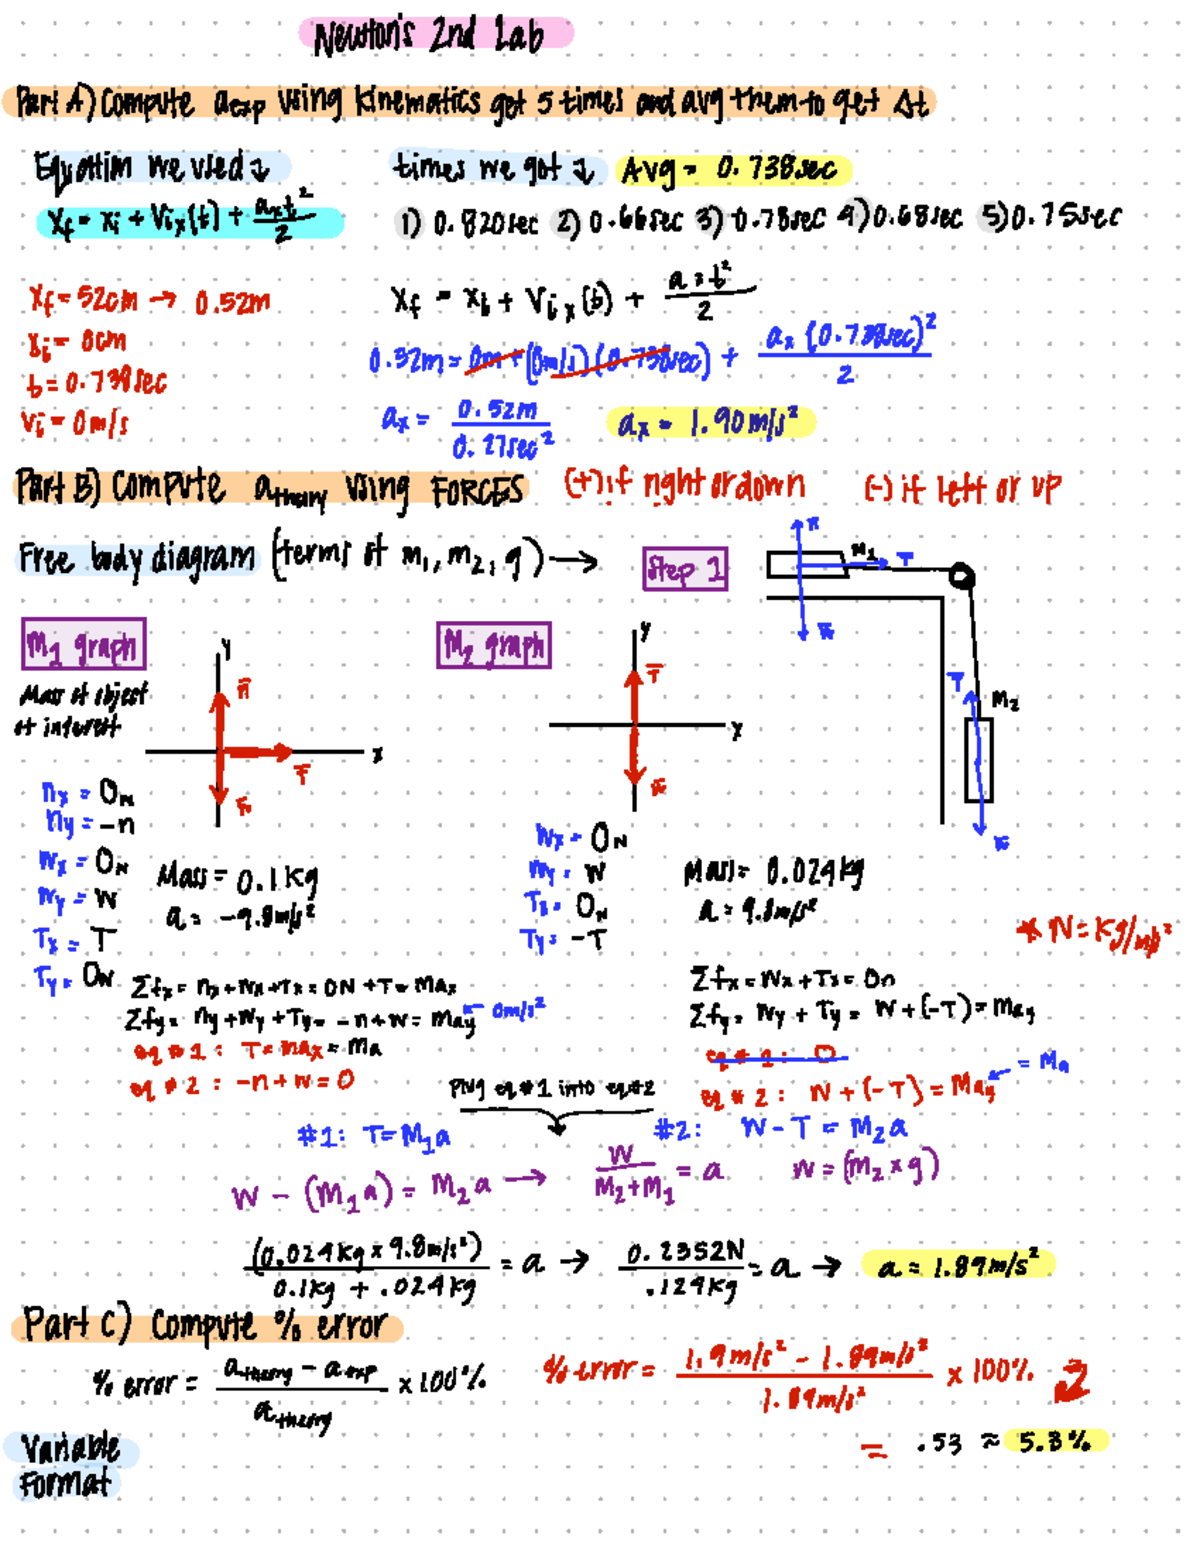 Newton's 2nd Lab
Part A) Compute aexp using kinematics get 5 times and avg them to get Δt
Equation we used ↓
times we got ↓ Avg = 0.738sec
Xf = Xi + Vix(t) + axt²/2
1) 0.820sec 2) 0.66sec 3) 0.78sec 4) 0.68sec 5) 0.75sec
Xf = 52cm → 0.52m
xi = 0cm
t = 0.738sec
Vi = 0m/s
Xf = Xi + Vix(t) + axt²/2
0.52m = 0m + (0m/s)(0.738sec) + ax(0.738sec)²/2
ax = 0.52m / 0.27sec²
ax = 1.90m/s²
Part B) Compute atheory using FORCES (+) if right or down (-) if left or up
Free body diagram (terms of m1, m2, g) →
Step 1
n
M1
T
w
T
M2
w
M1 graph
Mass of object of interest
y
n
x
T
nx = 0N
ny = -n
Wx = 0N
Wy = W
Tx = T
Ty = 0N
Mass = 0.1kg
a = -9.8m/s²
M2 graph
y
T
x
Wx = 0N
Wy = W
Tx = 0N
Ty = -T
Mass = 0.024kg
a = 9.8m/s²
* N = kg/m/s²
Σfx = nx + Wx + Tx = 0N + T = Max
Σfy = ny + Wy + Ty = -n + w = May ← 0m/s²
eq #1: T = max = ma
eq #2: -n + w = 0
Σfx = Wx + Tx = 0n
Σfy = Wy + Ty = W + (-T) = May
eq #1: 0
eq #2: W + (-T) = May ← = Ma
Plug eq #1 into eq #2
#1: T = M1a
#2: W - T = M2a
W - (M1a) = M2a → W / M2+M1 = a W = (m2 x g)
(0.024kg x 9.8m/s²) / 0.1kg + .024kg = a → 0.2352N / .124kg = a → a = 1.89m/s²
Part C) Compute % error
% error = atheory - aexp / atheory x 100%
% error = 1.9m/s² - 1.89m/s² / 1.89m/s² x 100%
= .53 ≈ 5.3%
Variable
Format